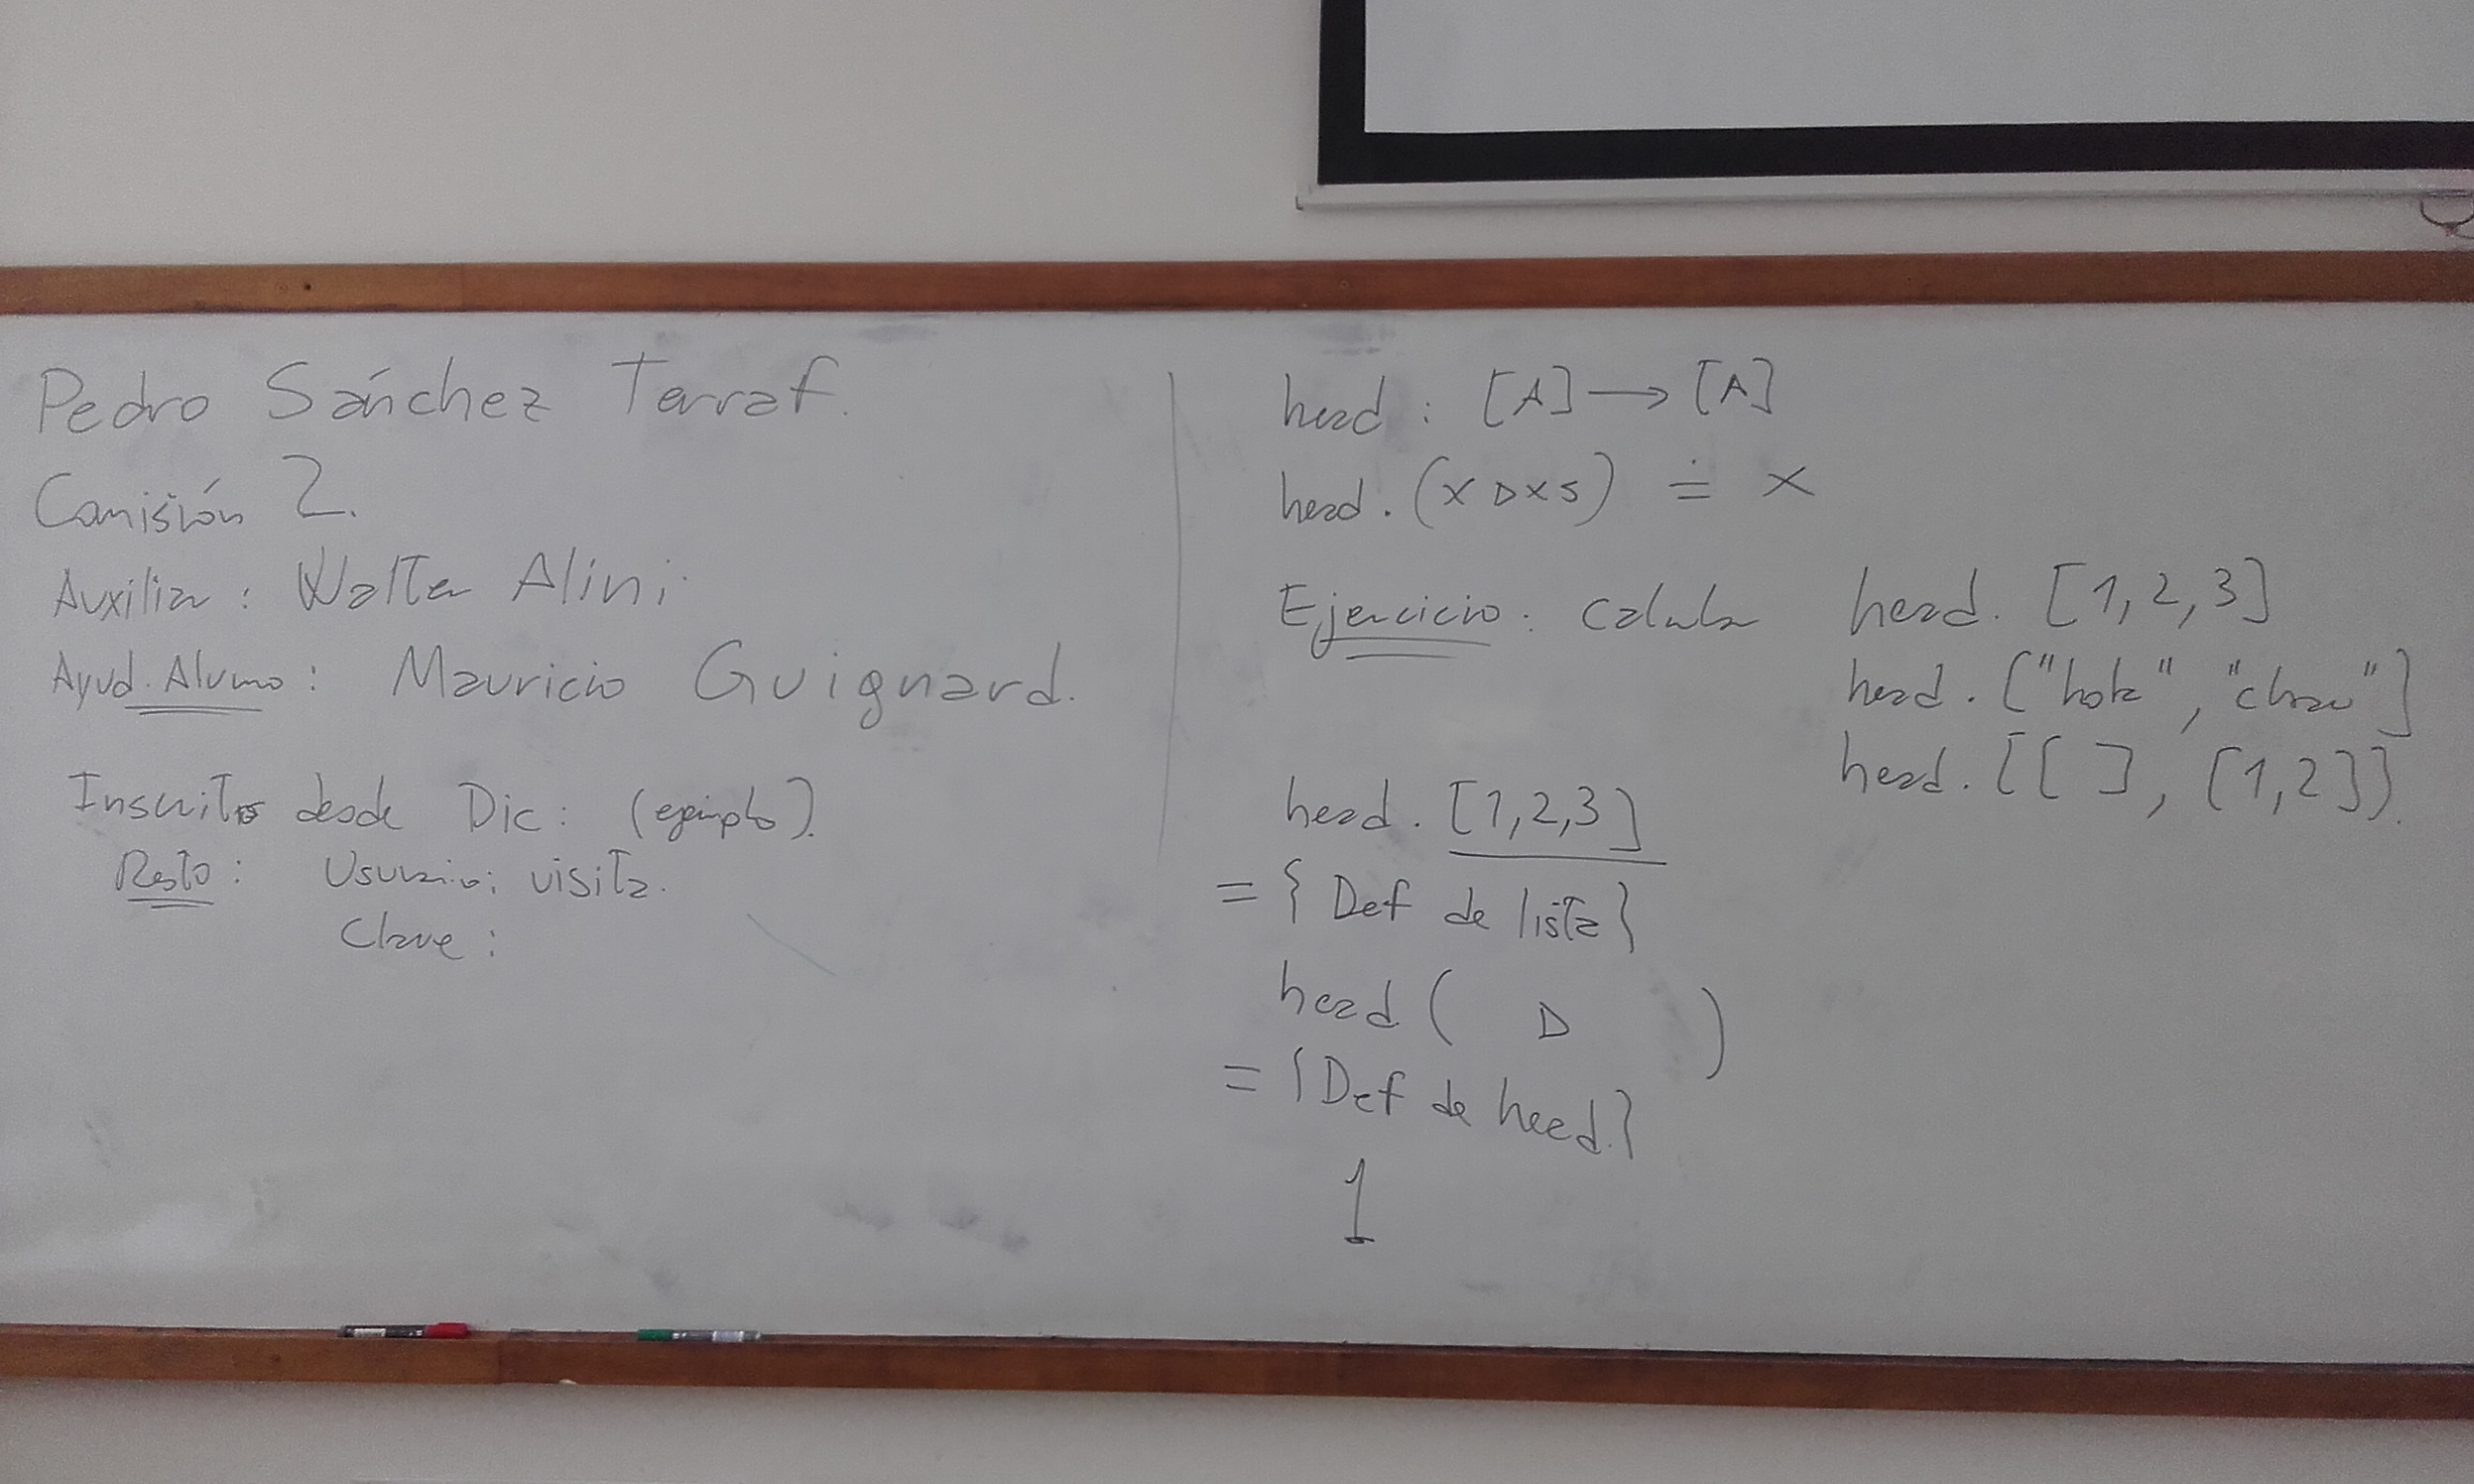 Pedro Sánchez Terraf.
Comisión 2.
Auxiliar : Walter Alini
Ayud. Alumno : Mauricio Guignard.
Inscritos desde Dic : (ejemplo).
Resto : Usuario: visita.
Clave :
head : [A] → [A]
head . (x ▷ xs) ≐ x
Ejercicio : calcular head. [1,2,3]
head . ["hola", "chau"]
head. [[ ], [1,2]].
head . [1,2,3]
= {Def de lista}
head ( ▷ )
= {Def de head.}
1